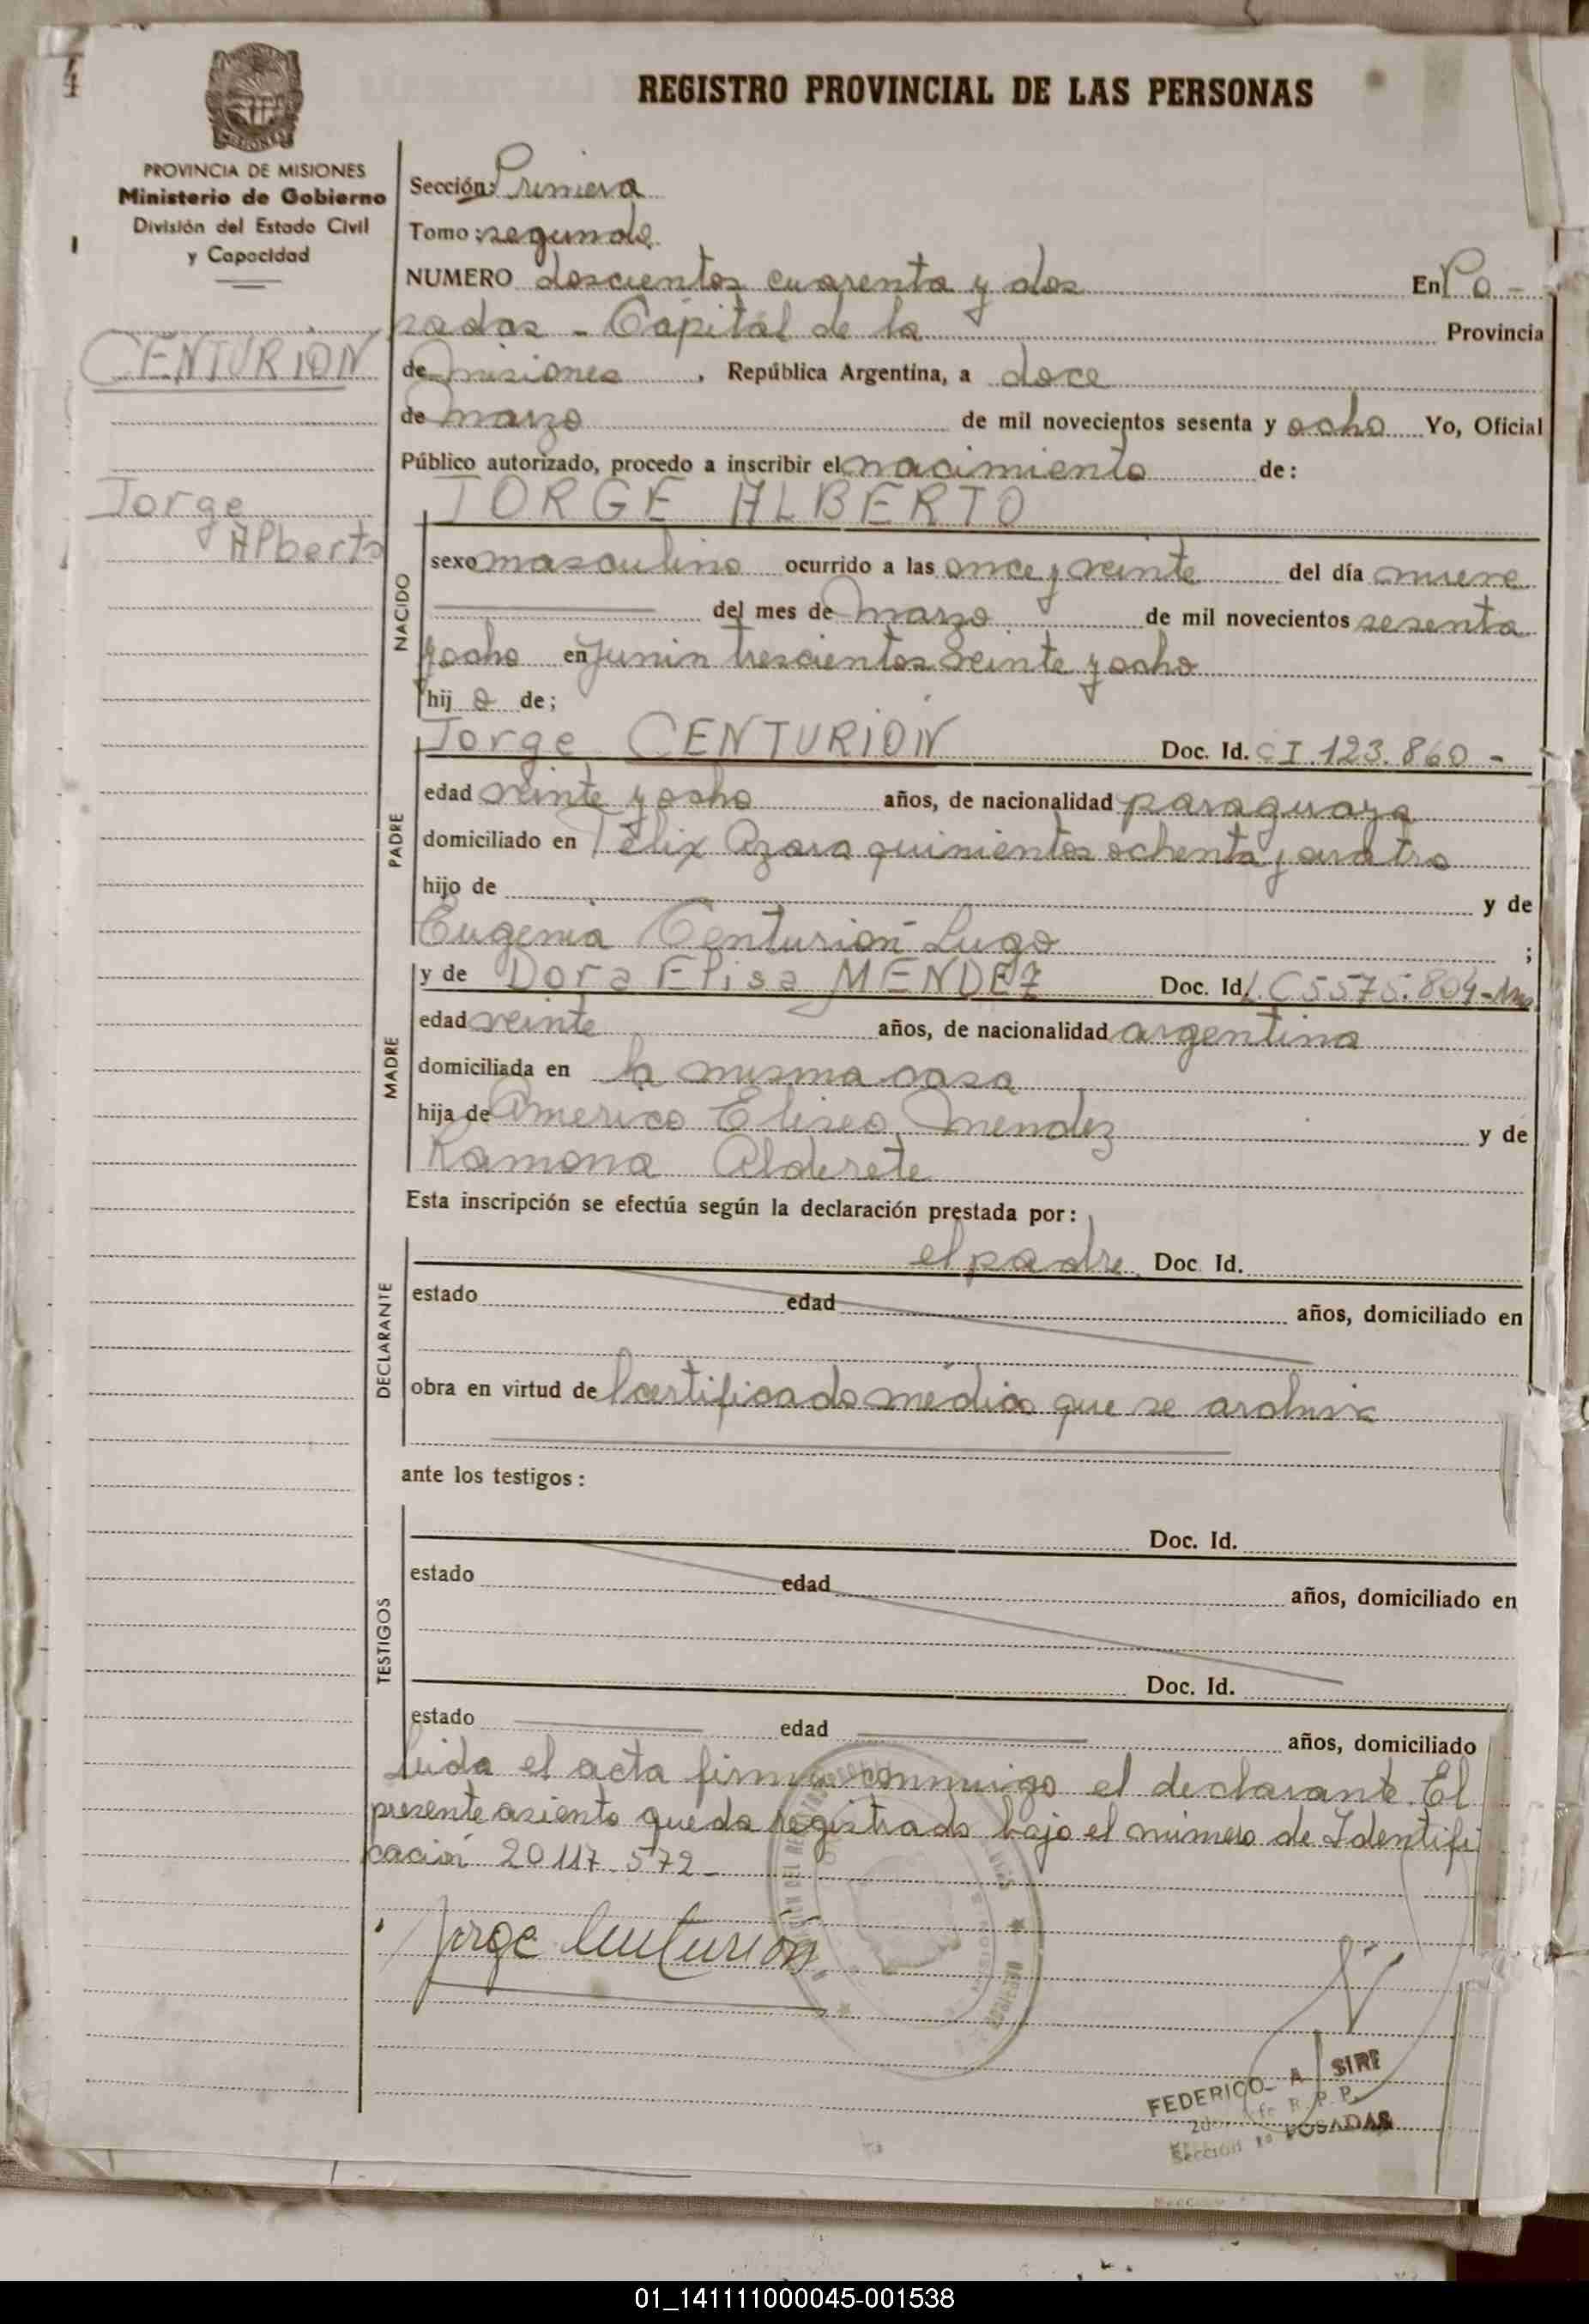 REGISTRO PROVINCIAL DE LAS PERSONAS
PROVINCIA DE MISIONES
Ministerio de Gobierno
División del Estado Civil
y Capacidad
CENTURION
Jorge
Alberto
Sección: Primera
Tomo: segundo
NUMERO doscientos cuarenta y dos En Po-
sadas - Capital de la Provincia
de misiones, República Argentina, a doce
de marzo de mil novecientos sesenta y ocho Yo, Oficial
Público autorizado, procedo a inscribir el nacimiento de:
JORGE ALBERTO
NACIDO
sexo masculino ocurrido a las once y veinte del día nueve
del mes de marzo de mil novecientos sesenta
y ocho en Junin trescientos veinte y ocho
hij o de;
Jorge CENTURION Doc. Id. CI. 123.860 -
PADRE
edad veinte y ocho años, de nacionalidad paraguaya
domiciliado en Félix Azara quinientos ochenta y cuatro
hijo de y de
Eugenia Centurión Lugo ;
MADRE
y de Dora Elisa MENDEZ Doc. Id. LC 5575.804-
edad veinte años, de nacionalidad argentina
domiciliada en la misma casa
hija de Americo Eliseo Mendez y de
Ramona Alderete
Esta inscripción se efectúa según la declaración prestada por:
DECLARANTE
el padre Doc. Id.
estado edad años, domiciliado en
obra en virtud del certificado médico que se archiva
ante los testigos:
TESTIGOS
Doc. Id.
estado edad años, domiciliado en
Doc. Id.
estado edad años, domiciliado
Leida el acta firma conmigo el declarante. El
presente asiento queda registrado bajo el número de Identifi
cación 20.117.572-
Jorge Centurión
FEDERICO A SIRI
2do. Jefe R. P. P.
Sección 1ª POSADAS
01_141111000045-001538